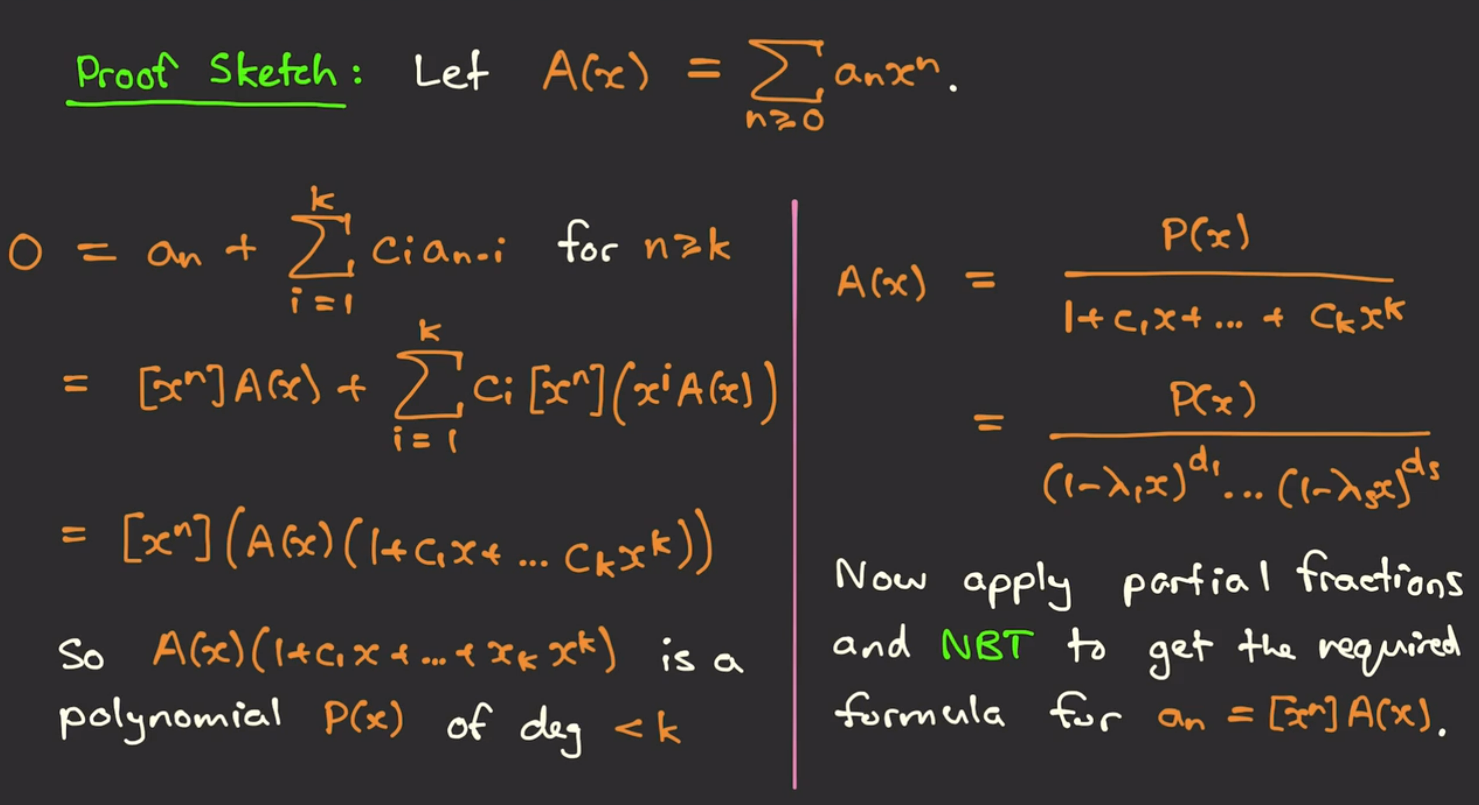 Proof Sketch: Let A(x) = ∑_{n≥0} aₙxⁿ.
0 = aₙ + ∑_{i=1}^{k} cᵢ aₙ₋ᵢ for n≥k
= [xⁿ]A(x) + ∑_{i=1}^{k} cᵢ [xⁿ](xⁱ A(x))
= [xⁿ](A(x)(1+c₁x+ ... cₖxᵏ))
So A(x)(1+c₁x+...+xₖxᵏ) is a
polynomial P(x) of deg <k
A(x) = P(x) / (1+c₁x+...+cₖxᵏ)
= P(x) / ((1-λ₁x)^{d₁}...(1-λₛx)^{dₛ})
Now apply partial fractions
and NBT to get the required
formula for aₙ = [xⁿ]A(x).